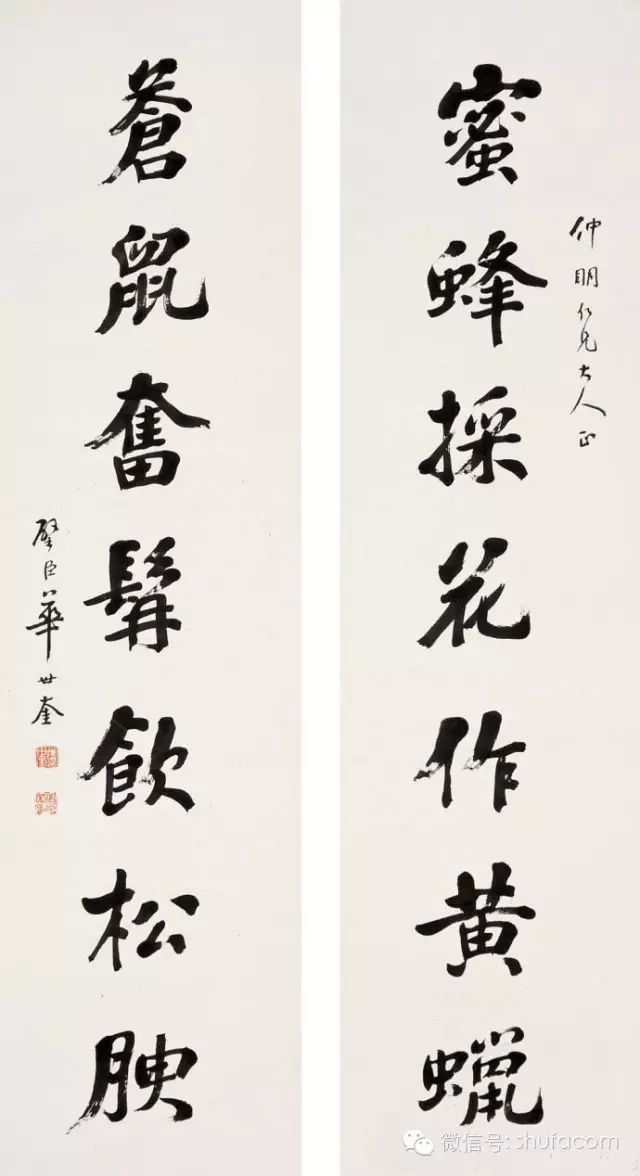 仲明仁兄大人正
蜜蜂採花作黄蠟
蒼鼠奮髯飲松腴
璧臣華世奎
微信号: shufacom